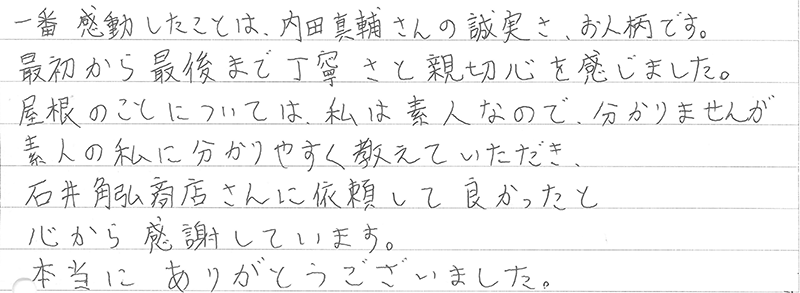 一番 感動したことは、内田真輔さんの誠実さ、お人柄です。
最初から最後まで丁寧さと親切心を感じました。
屋根のことについては、私は素人なので、分かりませんが
素人の私に分かりやすく教えていただき、
石井角弘商店さんに依頼して良かったと
心から感謝しています。
本当にありがとうございました。